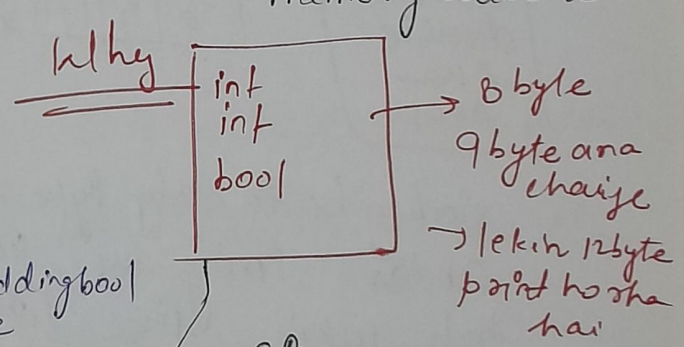 memory
Why
int
int
bool
8 byte
9 byte ana
chaiye
→ lekin 12 byte
print ho rha
hai
ddingbool